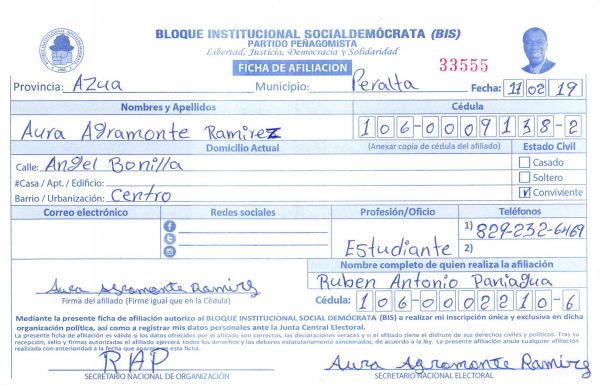 BLOQUE INSTITUCIONAL SOCIALDEMÓCRATA (BIS)
PARTIDO PEÑAGOMISTA
Libertad, Justicia, Democracia y Solidaridad
FICHA DE AFILIACION
33555
Provincia: Azua Municipio: Peralta Fecha: 11 02 19
Nombres y Apellidos Cédula
Aura Agramonte Ramirez 106-0009138-2
Domicilio Actual (Anexar copia de cédula del afiliado) Estado Civil
Calle: Angel Bonilla Casado
#Casa / Apt. / Edificio: Soltero
Barrio / Urbanización: Centro Conviviente
Correo electrónico Redes sociales Profesión/Oficio Teléfonos
1) 829-232-6469
Estudiante 2)
Nombre completo de quien realiza la afiliación
Ruben Antonio Paniagua
Aura Agramonte Ramirz
Firma del afiliado (Firme igual que en la Cédula) Cédula: 106-0002210-6
Mediante la presente ficha de afiliación autorizo al BLOQUE INSTITUCIONAL SOCIAL DEMÓCRATA (BIS) a realizar mi inscripción única y exclusiva en dicha
organización política, así como a registrar mis datos personales ante la Junta Central Electoral.
La presente ficha de afiliación es válida si los datos ofrecidos por el afiliado son correctos, las declaraciones veraces y si el afiliado tiene el disfrute de sus derechos civiles y políticos. Tras su
recepción, sello y firmas autorizadas el afiliado ejercerá todos los derechos y los deberes estatutariamente sancionados, de acuerdo a la ley. La presente afiliación anula cualquier afiliación
realizada con anterioridad a la fecha que aparece en esta ficha.
RAP Aura Agramonte Ramirz
SECRETARIO NACIONAL DE ORGANIZACIÓN SECRETARIO NACIONAL ELECTORAL